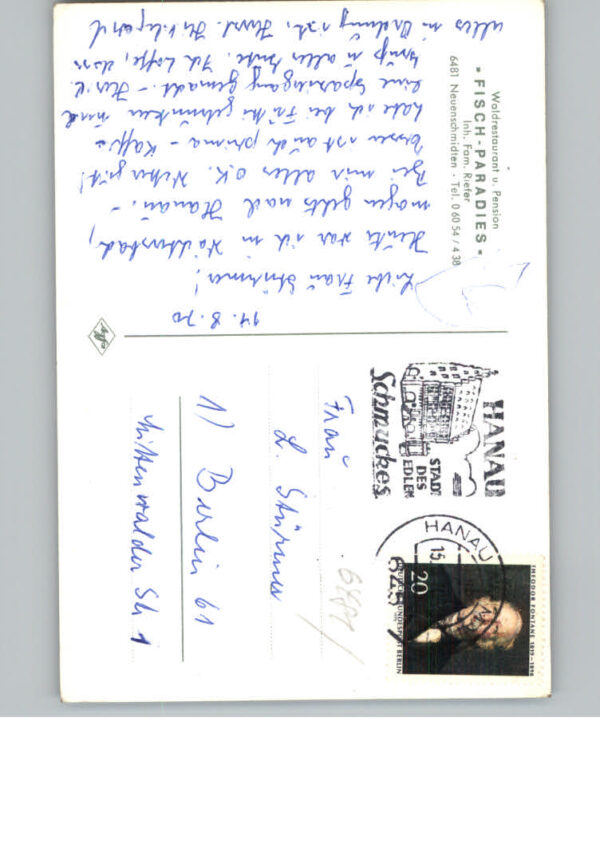 Waldrestaurant u. Pension
» FISCH - PARADIES «
Inh. Fam. Riefer
6481 Neuenschmidten · Tel. 0 60 54 / 4 38
14.8.70
Liebe Frau Stürmer!
Heute war ich in Wächtersbad,
morgen gehts nach Hanau. -
Bei mir alles O.K. Wetter gut!
Essen ist auch prima - Kaffee
habe ich bei getrunken und
eine Spaziergang gemacht. -
Grüß u. alles Gute. Ich hoffe, dass
alles in Ordnung ist.
HANAU
STADT
DES
EDLEN
Schmuckes
HANAU
15
645
THEODOR FONTANE 1819-1898
20
DEUTSCHE BUNDESPOST BERLIN
Frau
L. Stürmer
1) Berlin 61
Mittenwalder Str. 1
Agfa